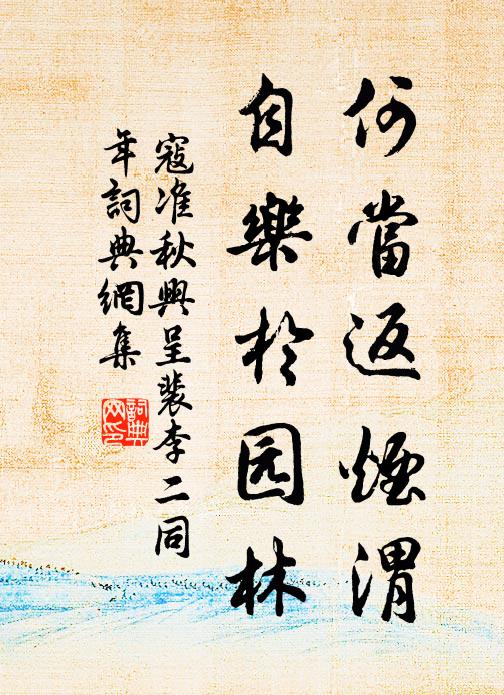 何當返煙渭
自樂於园林
寇准秋興呈裴李二同
年詞典網集
詞典
网印